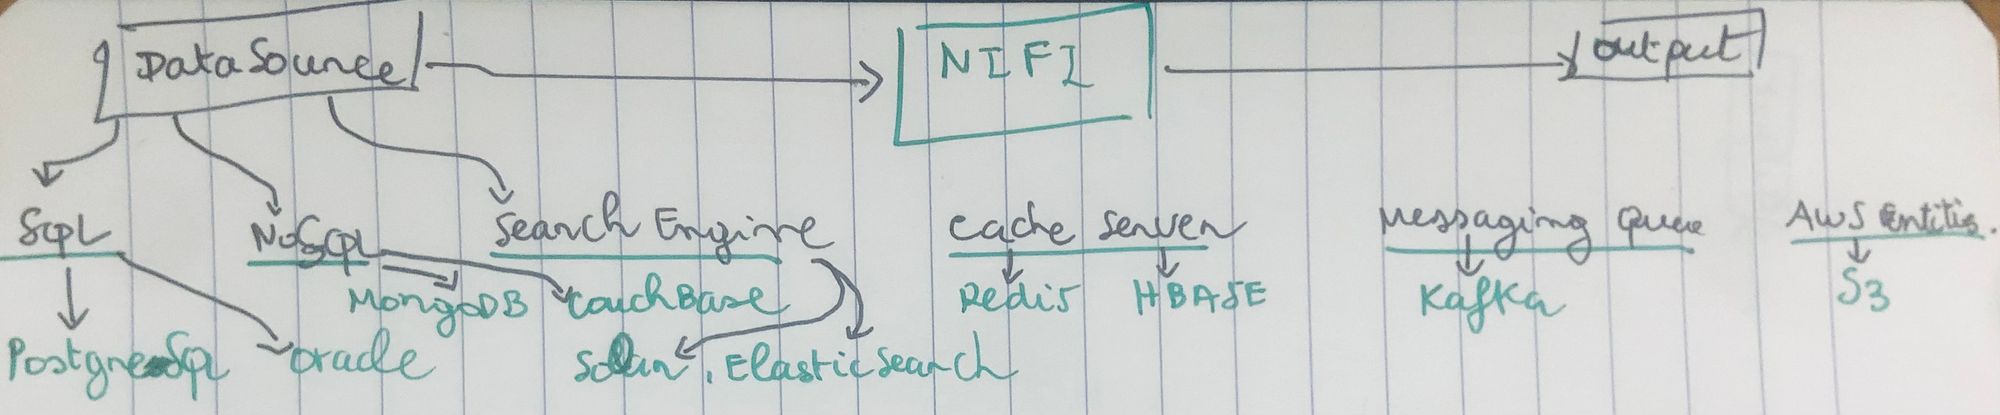 DataSource NIFI output
SqL NoSqL Search Engine Cache Server Messaging Queue AWS Entitis.
MongoDB CouchBase Redis HBASE Kafka S3
PostgreSql Oracle Solr, ElasticSearch